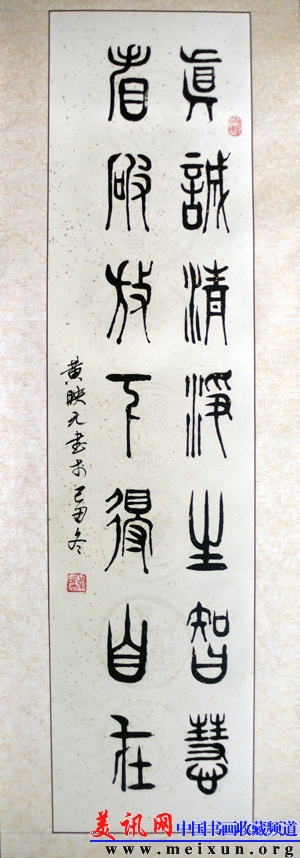 真誠清淨生智慧
看破放下得自在
黄映元書於己丑冬
美讯网 中国书画收藏频道
www.meixun.org